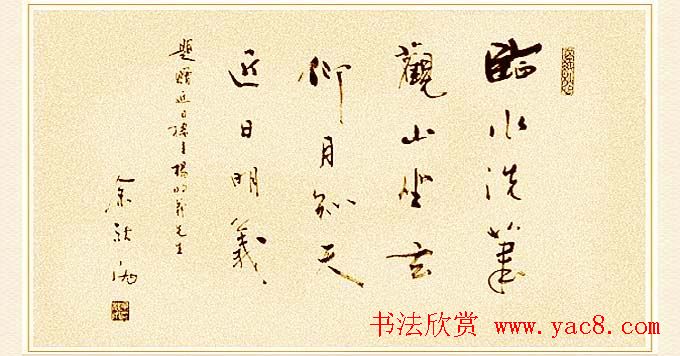 臨水洗筆
觀山坐玄
仰月知天
近日明義
題贈近日樓主楊明義先生
余秋雨
书法欣赏 www.yac8.com